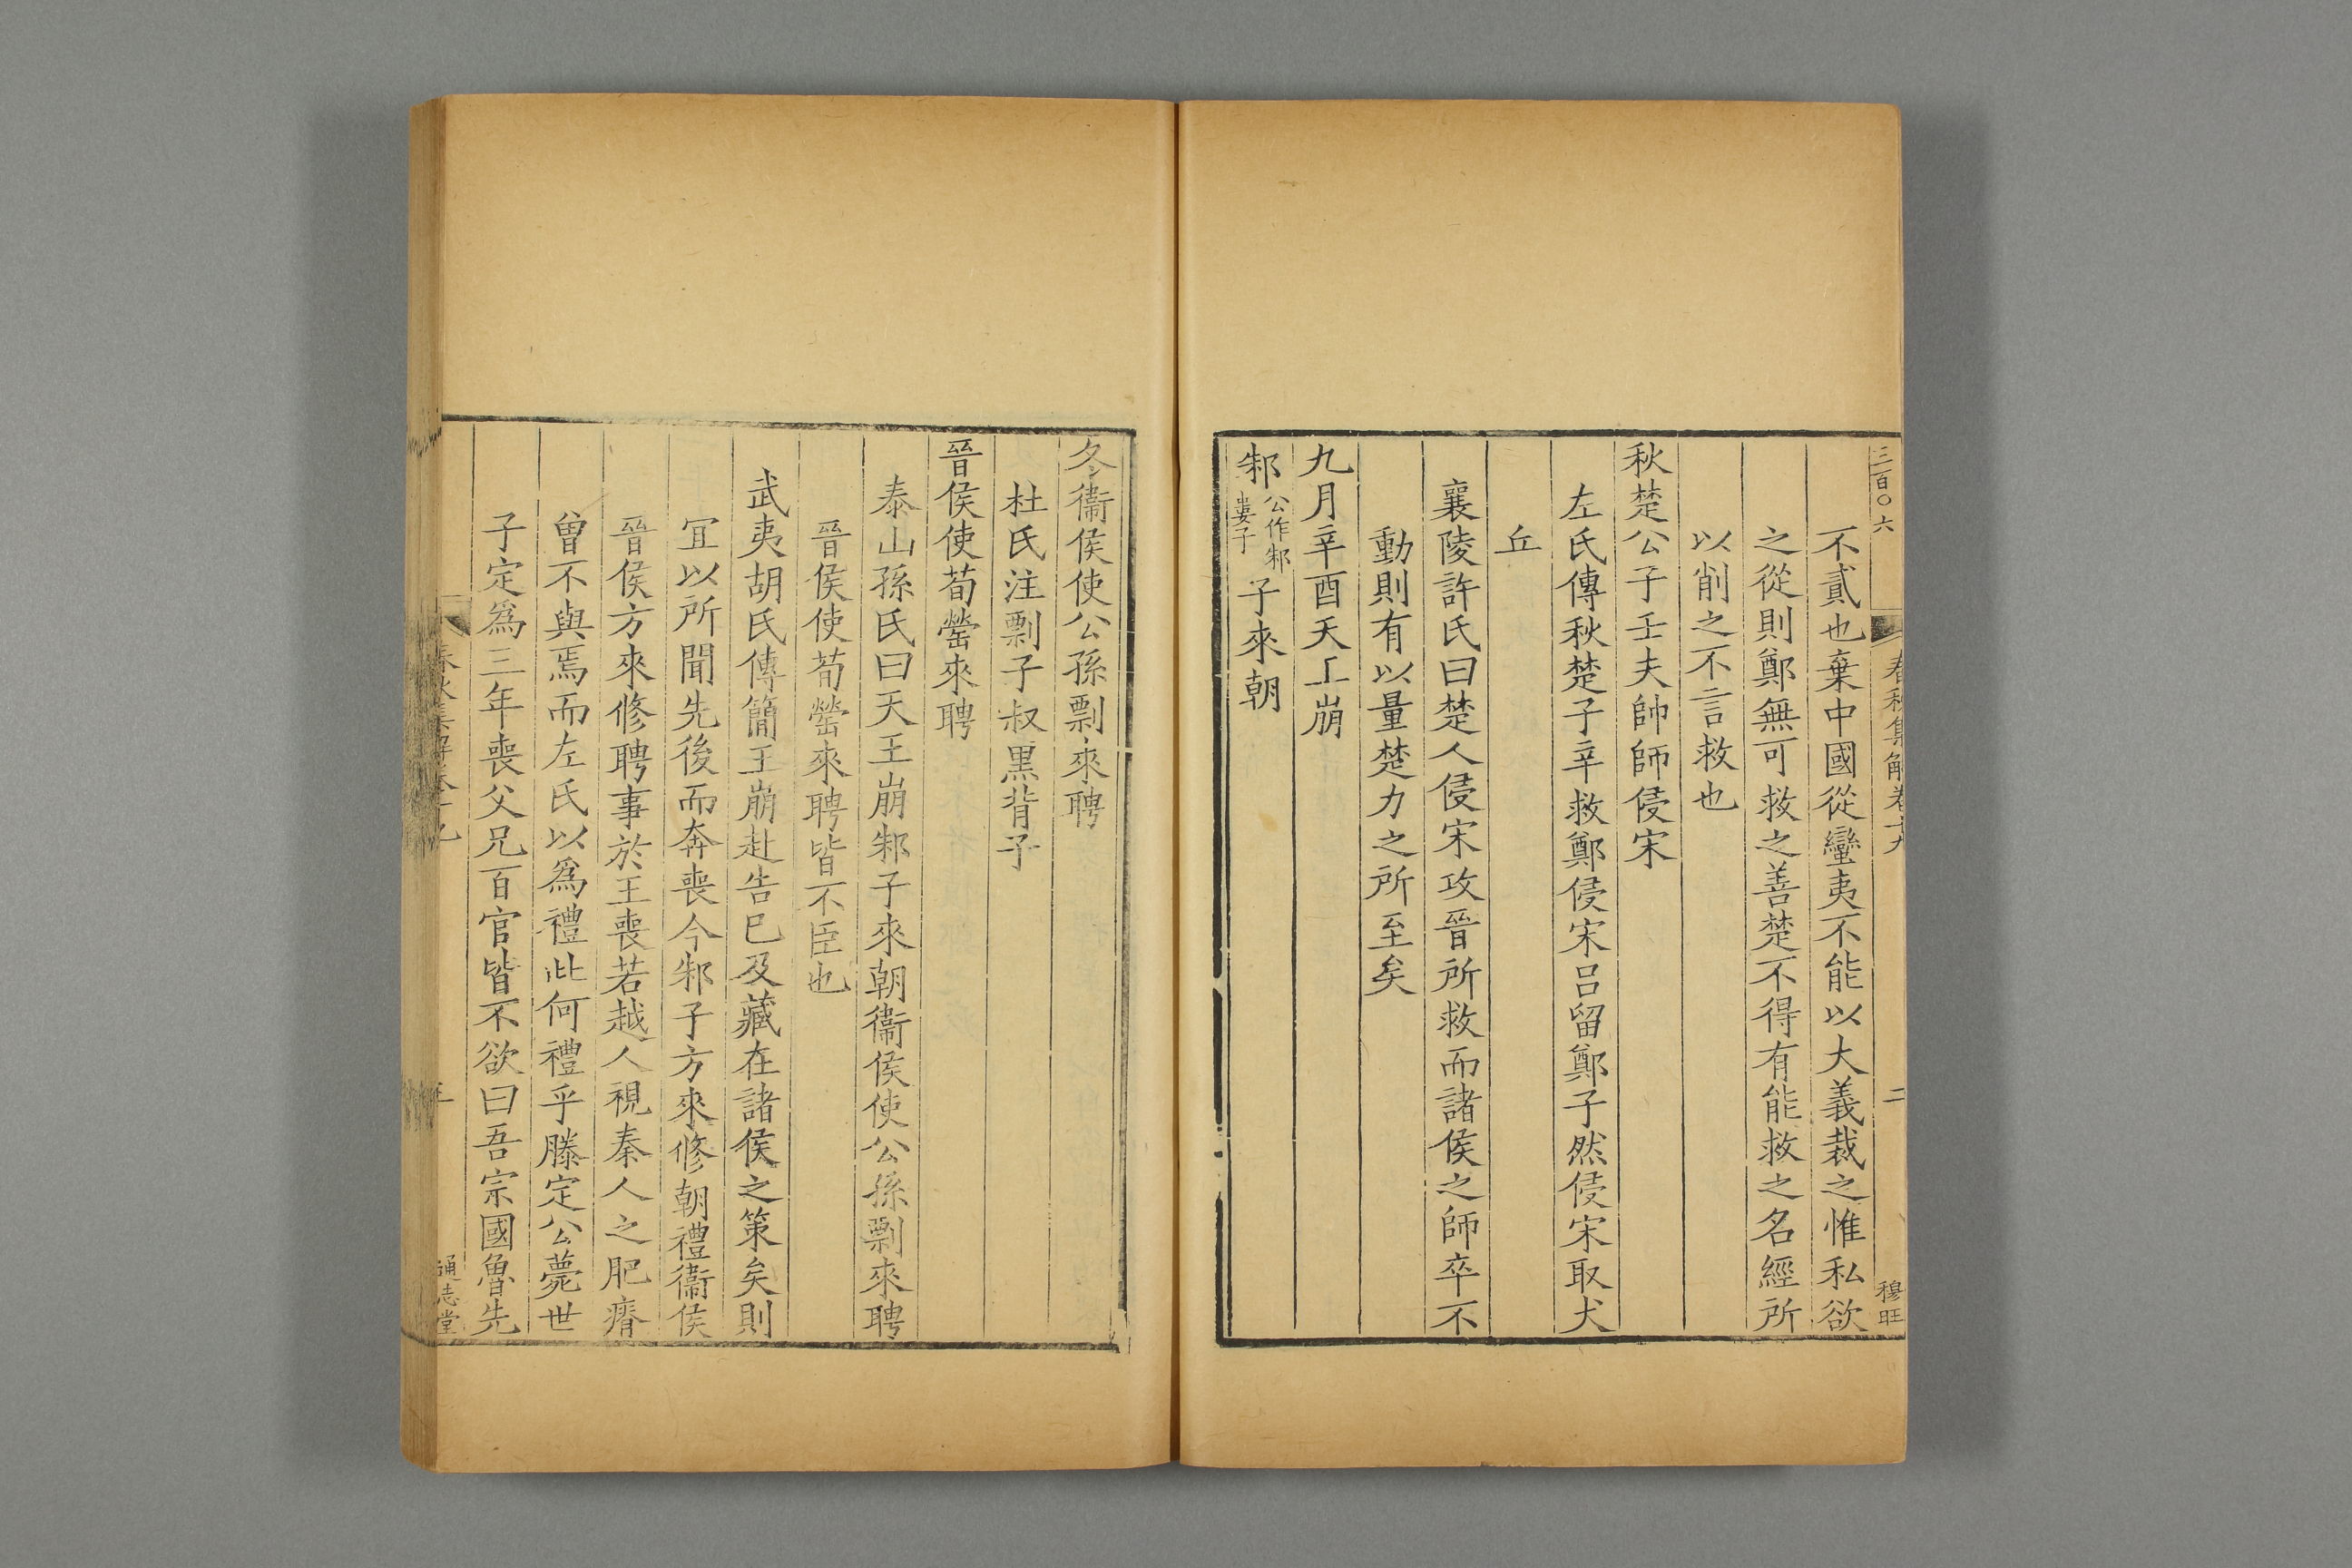 三百〇六
春秋集解卷十九
二
穆旺
不貳也棄中國從蠻夷不能以大義裁之惟私欲
之從則鄭無可救之善楚不得有能救之名經所
以削之不言救也
秋楚公子壬夫帥師侵宋
左氏傳秋楚子辛救鄭侵宋呂留鄭子然侵宋取犬
丘
襄陵許氏曰楚人侵宋攻晉所救而諸侯之師卒不
動則有以量楚力之所至矣
九月辛酉天王崩
邾公作邾婁子子來朝
冬衞侯使公孫剽來聘
杜氏注剽子叔黑背子
晉侯使荀罃來聘
泰山孫氏曰天王崩邾子來朝衞侯使公孫剽來聘
晉侯使荀罃來聘皆不臣也
武夷胡氏傳簡王崩赴告已及藏在諸侯之策矣則
宜以所聞先後而奔喪今邾子方來修朝禮衞侯
晉侯方來修聘事於王喪若越人視秦人之肥瘠
曾不與焉而左氏以爲禮此何禮乎滕定公薨世
子定爲三年喪父兄百官皆不欲曰吾宗國魯先
春秋集解卷十九
通志堂